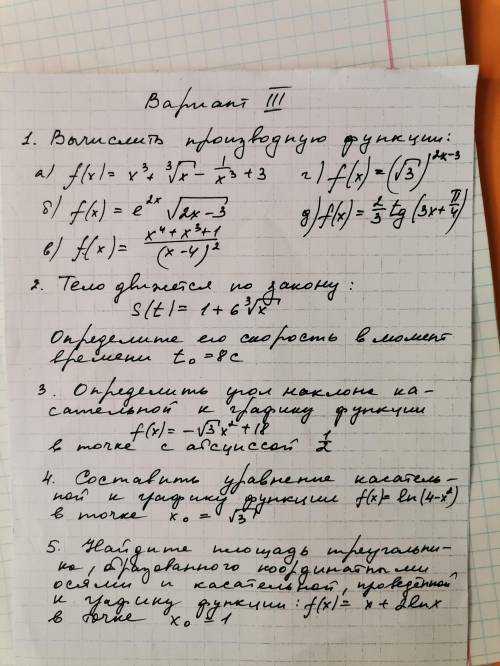 Вариант III
1. Вычислить производную функции:
а) f(x) = x³ + ∛x − 1/x³ + 3
г) f(x) = (√3)^(2x−3)
б) f(x) = e^(2x) √(2x−3)
д) f(x) = 2/3 tg (3x + π/4)
в) f(x) = (x⁴ + x³ + 1)/(x−4)²
2. Тело движется по закону:
S(t) = 1 + 6∛x
Определите его скорость в момент
времени t₀ = 8с
3. Определить угол наклона ка-
сательной к графику функции
f(x) = −√3x² + 18
в точке с абсциссой 1/2
4. Составить уравнение касатель-
ной к графику функции f(x) = ln(4−x²)
в точке x₀ = √3
5. Найдите площадь треугольни-
ка, образованного координатными
осями и касательной, проведённой
к графику функции: f(x) = x + 2lnx
в точке x₀ = 1